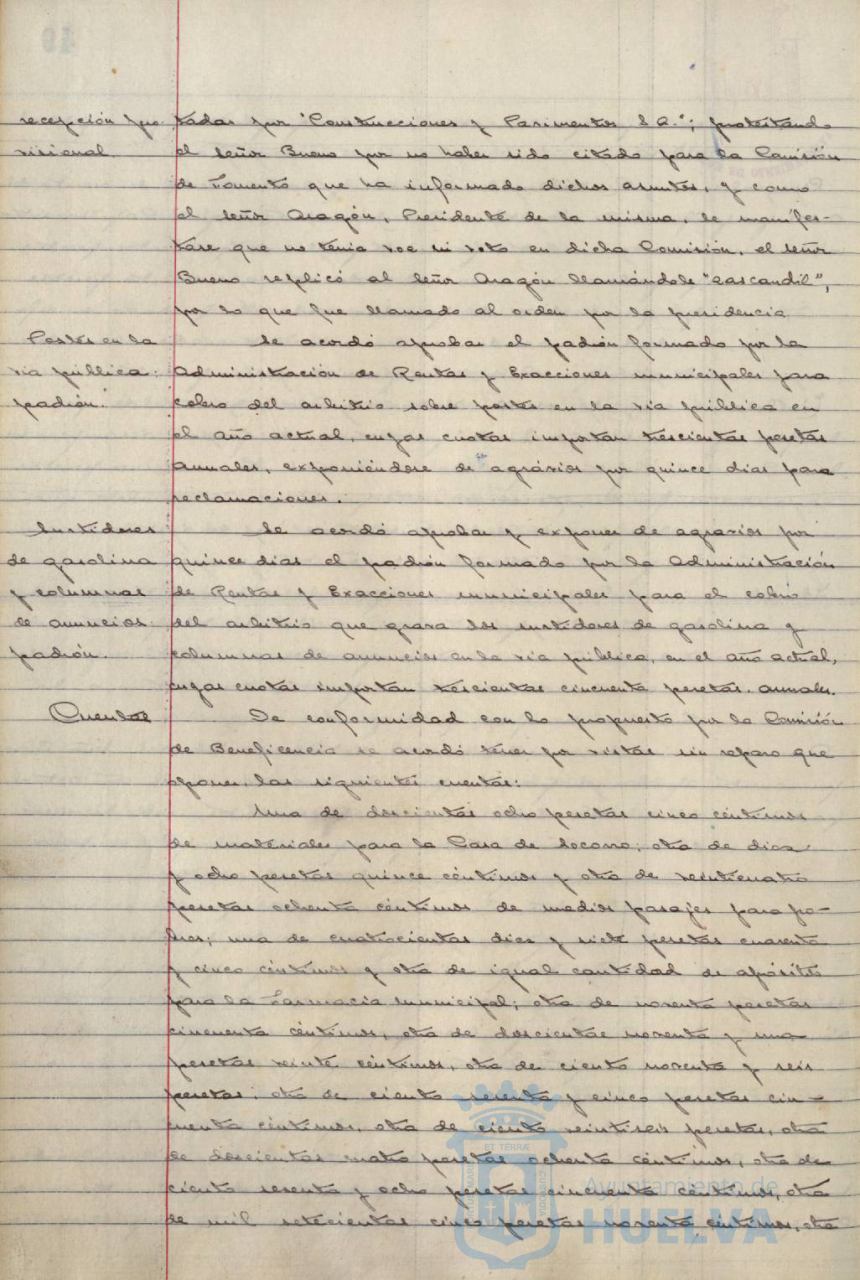 recepción pro-
visional.
tadas por "Construcciones y Pavimentos S.A."; protestando
el señor Bueno por no haber sido citado para la Comisión
de Fomento que ha informado dichos asuntos, y como
el señor Aragón, Presidente de la misma, le manifes-
tase que no tenia voz ni voto en dicha Comisión, el señor
Bueno replicó al señor Aragón llamándole "zascandil",
por lo que fue llamado al orden por la presidencia
Postes en la
via pública:
padrón.
Se acordó aprobar el padrón formado por la
Administración de Rentas y Exacciones municipales para
cobro del arbitrio sobre postes en la via pública en
el año actual, cuyas cuotas importan trescientas pesetas
anuales, exponiéndose de agrávios por quince dias para
reclamaciones.
Surtidores
de gasolina
y columnas
de anuncios
padrón.
Se acordó aprobar y exponer de agravios por
quince dias el padrón formado por la Administración
de Rentas y Exacciones municipales para el cobro
del arbitrio que grava los surtidores de gasolina y
columnas de anuncios en la via pública, en el año actual,
cuyas cuotas importan trescientas cincuenta pesetas. anuales.
Cuentas
De conformidad con lo propuesto por la Comisión
de Beneficencia se acordó tener por vistas sin reparo que
oponer, las siguientes cuentas:
Una de doscientas ocho pesetas cinco céntimos
de materiales para la Casa de Socorro; otra de diez
y ocho pesetas quince céntimos y otra de veinticuatro
pesetas ochenta céntimos de medios pasajes para po-
bres; una de cuatrocientas diez y siete pesetas cuarenta
y cinco céntimos y otra de igual cantidad de apósitos
para la Farmacia municipal; otra de noventa pesetas
cincuenta céntimos, otra de doscientas noventa y una
pesetas veinte céntimos, otra de ciento noventa y seis
pesetas; otra de ciento sesenta y cinco pesetas cin-
cuenta céntimos, otra de ciento veintiseis pesetas, otra
de doscientas cuatro pesetas ochenta céntimos, otra de
ciento sesenta y ocho pesetas cincuenta céntimos, otra
de mil setecientas cinco pesetas noventa céntimos, otra
ET TERRÆ
Ayuntamiento de
HUELVA